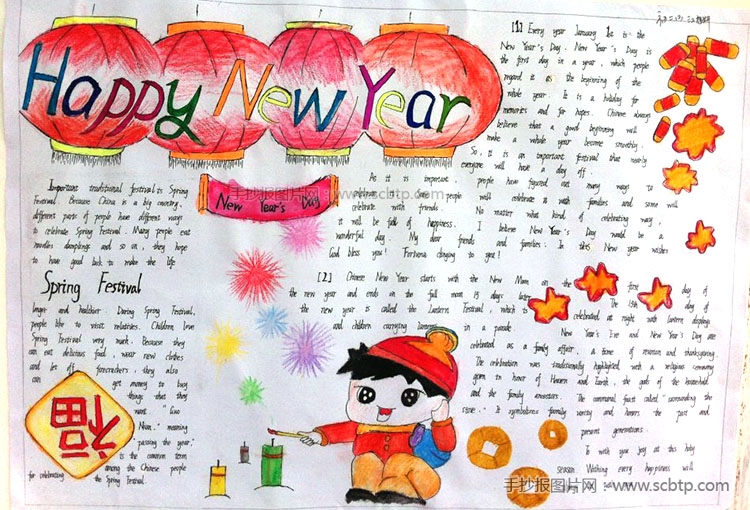 Happy New Year
[1] Every year January 1st is the
New Year's Day. New Year's Day is
the first day in a year, which people
regard it as the beginning of the
whole year. It is a holiday for
memories and for hopes. Chinese always
believe that a good beginning will
make a whole year become smoothly.
So it is an important festival that nearly
everyone will have a day off.
As it is important, people have figured out many ways to
celebrate. Some people will celebrate it with families and some will
celebrate with friends. No matter what kind of celebrating way,
it will be full of happiness. I believe New Year's Day would be a
wonderful day. My dear friends and families: In this New year wisher
God bless you! Fortuna clinging to you!
手抄报图片网:www.scbtp.com
New Year's Day
Important traditional festival is Spring
Festival. Because China is a big country,
different parts of people have different ways
to celebrate Spring Festival. Many people eat
noodles dumplings and so on, they hope
to have good back to make the life
Spring Festival
longer and healthier. During Spring Festival,
people like to visit relatives. Children love
Spring Festival very much. Because they
can eat delicious food, wear new clothes
and let off firecrackers, they also
can get money to buy
things that they
want. "Guo
Nian," meaning
"passing the year,"
is the common term
among the Chinese people
for celebrating the Spring Festival.
福
[2] Chinese New Year starts with the New Moon on the first day of
the new year and ends on the full moon 15 days later. The 15th day of
the new year is called the Lantern Festival, which is celebrated at night with lantern displays
and children carrying lanterns in a parade.
New Year's Eve and New Year's Day are
celebrated as a family affair, a time of reunion and thanksgiving.
The celebration was traditionally highlighted with a religious ceremony
given in honor of Heaven and Earth, the gods of the household
and the family ancestors. The communal feast called "surrounding the
stove." It symbolizes family unity and honors the past and
present generations.
To wish you joy at this holy
season. Wishing every happiness will
手抄报图片网:www.scbtp.com